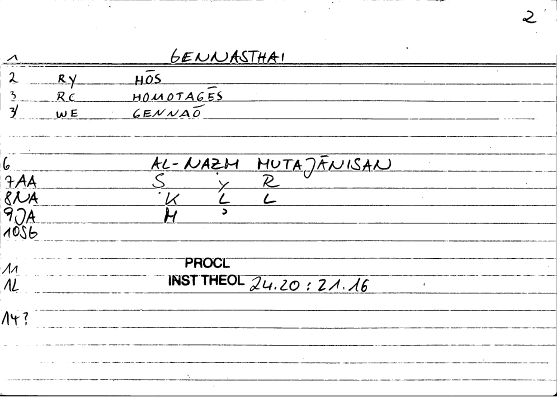 2
1 GENNASTHAI
2 RY HŌS
3 RC HOMOTAGĒS
3/ WE GENNAŌ
6 AL-NAZM MUTAJĀNISAN
7AA S Y R
8NA K L L
9JA M ʾ
10SG
11 PROCL
12 INST THEOL 24.20 : 21.16
14?